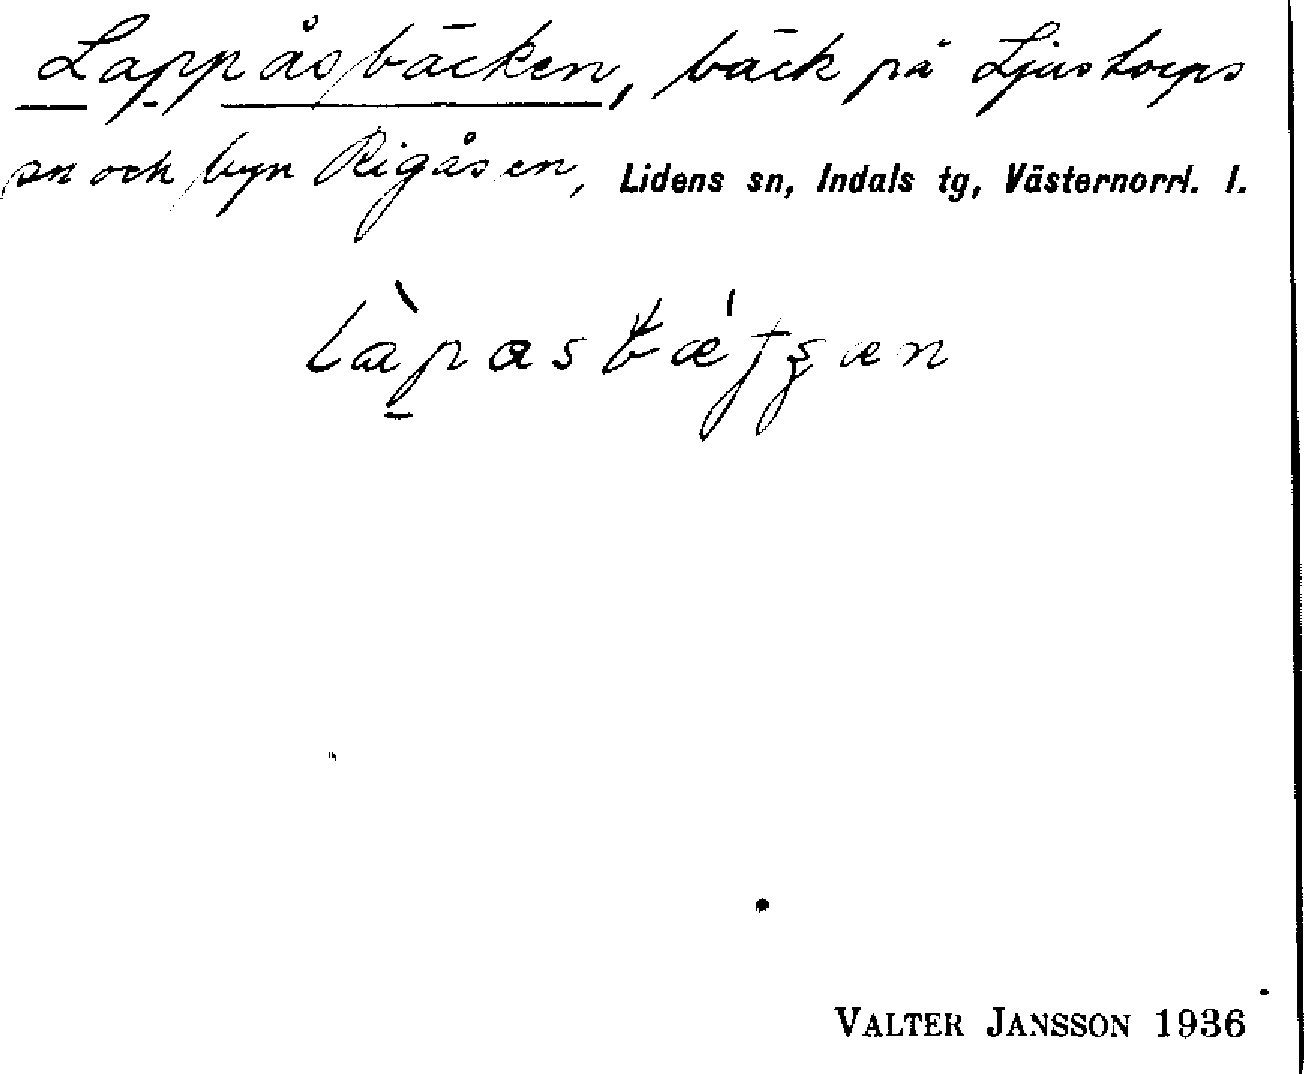 Lappåsbäcken, bäck på Ljustorps
sn och byn Rigåsen, Lidens sn, Indals tg, Västernorrl. l.
VALTER JANSSON 1936